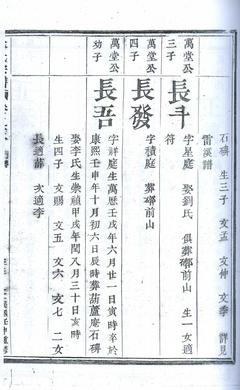 石磷 生三子 文孟 文仲 文季 詳見
雷溪譜
萬堂公
三子
長斗
字星庭 娶劉氏 俱葬鄒前山 生一女適
符
萬堂公
四子
長發
字積庭 葬鄒前山
萬堂公
幼子
長吾
字祥庭生萬曆壬戌年六月廿一日寅時卒於
康熙壬申年十月初六日辰時葬葫蘆庵石磚
娶李氏生崇禎甲戌年閏八月三十日亥時
生四子 文賜 文五 文六 文七 二女
長適薛 次適李